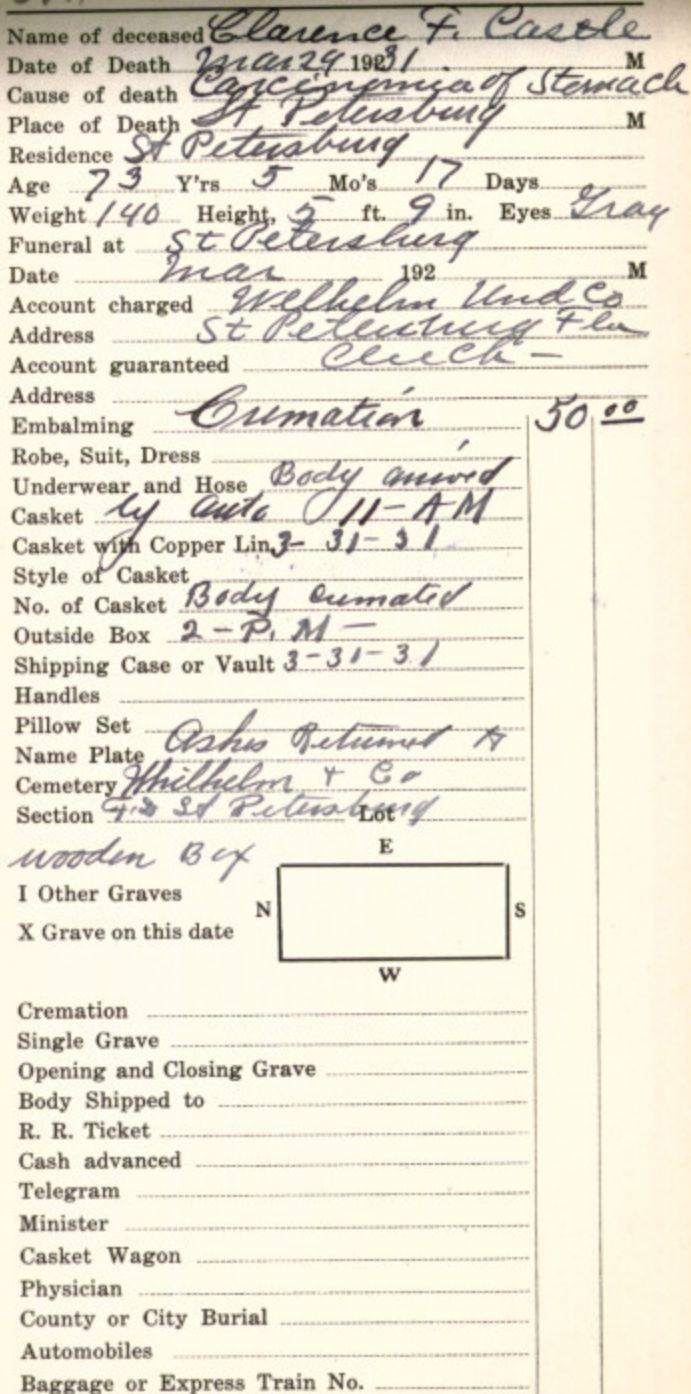 Name of deceased Clarence F. Castle
Date of Death Mar 29 1931 M
Cause of death Carcinomia of Stomach
Place of Death St Petersburg M
Residence St Petersburg
Age 73 Y'rs 5 Mo's 17 Days
Weight 140 Height, 5 ft. 9 in. Eyes Gray
Funeral at St Petersburg
Date Mar 192 M
Account charged Welhelm Und Co
Address St Petersburg Fla
Account guaranteed
Address
Embalming Cremation 50 00
Robe, Suit, Dress
Underwear and Hose Body arrived
Casket by auto 11 - A M
Casket with Copper Lin. 3 - 31 - 31
Style of Casket
No. of Casket Body cremated
Outside Box 2 - P. M -
Shipping Case or Vault 3-31-31
Handles
Pillow Set
Name Plate Ashes Returned to
Cemetery Whilhelm & Co
Section St Petersburg Lot
wooden Box
E
I Other Graves
N S
X Grave on this date
W
Cremation
Single Grave
Opening and Closing Grave
Body Shipped to
R. R. Ticket
Cash advanced
Telegram
Minister
Casket Wagon
Physician
County or City Burial
Automobiles
Baggage or Express Train No.